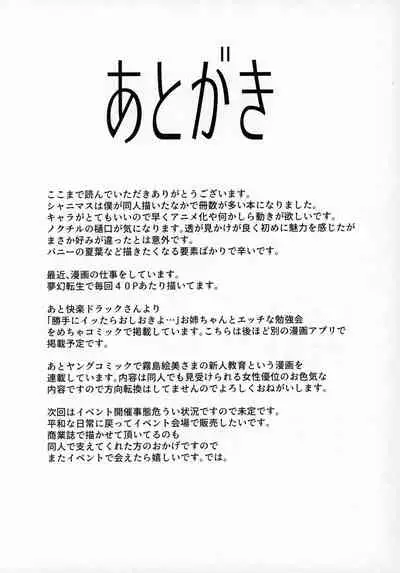 あとがき
ここまで読んでいただきありがとうございます。
シャニマスは僕が同人描いたなかで冊数が多い本になりました。
キャラがとてもいいので早くアニメ化や何かしら動きが欲しいです。
ノクチルの樋口が気になります。透が見かけが良く初めに魅力を感じたが
まさか好みが違ったとは意外です。
バニーの夏葉など描きたくなる要素ばかりで辛いです。
最近、漫画の仕事をしています。
夢幻転生で毎回40Pあたり描いてます。
あと快楽ドラックさんより
「勝手にイッたらおしおきよ…」お姉ちゃんとエッチな勉強会
をめちゃコミックで掲載しています。こちらは後ほど別の漫画アプリで
掲載予定です。
あとヤングコミックで霧島絵美さまの新人教育という漫画を
連載しています。内容は同人でも見受けられる女性優位のお色気な
内容ですので方向転換はしてませんのでよろしくおねがいします。
次回はイベント開催事態危うい状況ですので未定です。
平和な日常に戻ってイベント会場で販売したいです。
商業誌で描かせて頂いてるのも
同人で支えてくれた方のおかげですので
またイベントで会えたら嬉しいです。では。